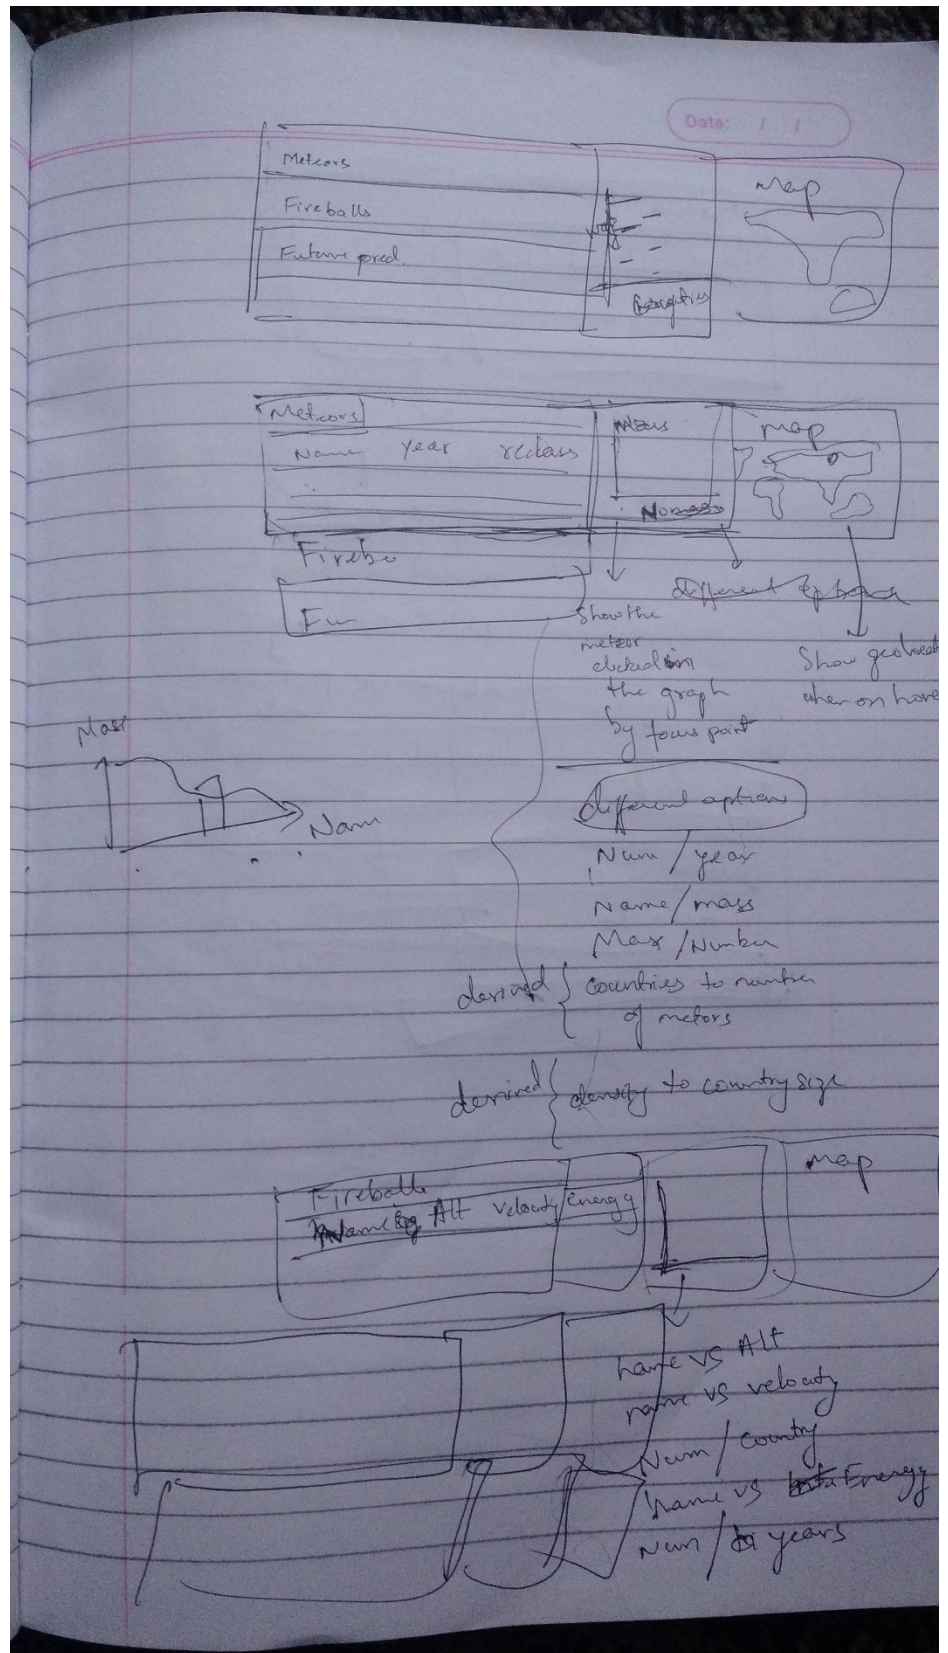 Data: / /
Meteors
Map
Fireballs
Future pred.
Meteors
Map
Name year reclass
Fireba
different
Fu
Show the
meteor
clicked in
the graph
by focus point
Show
when on hove
Mass
Nam
different options
Num / year
Name / mass
Mass / Number
derived { countries to number
of metors
derived { density to country size
Fireballs
Name Alt velocity Energy
Map
name vs Alt
name vs velocity
Num / country
name vs Energy
Num / years